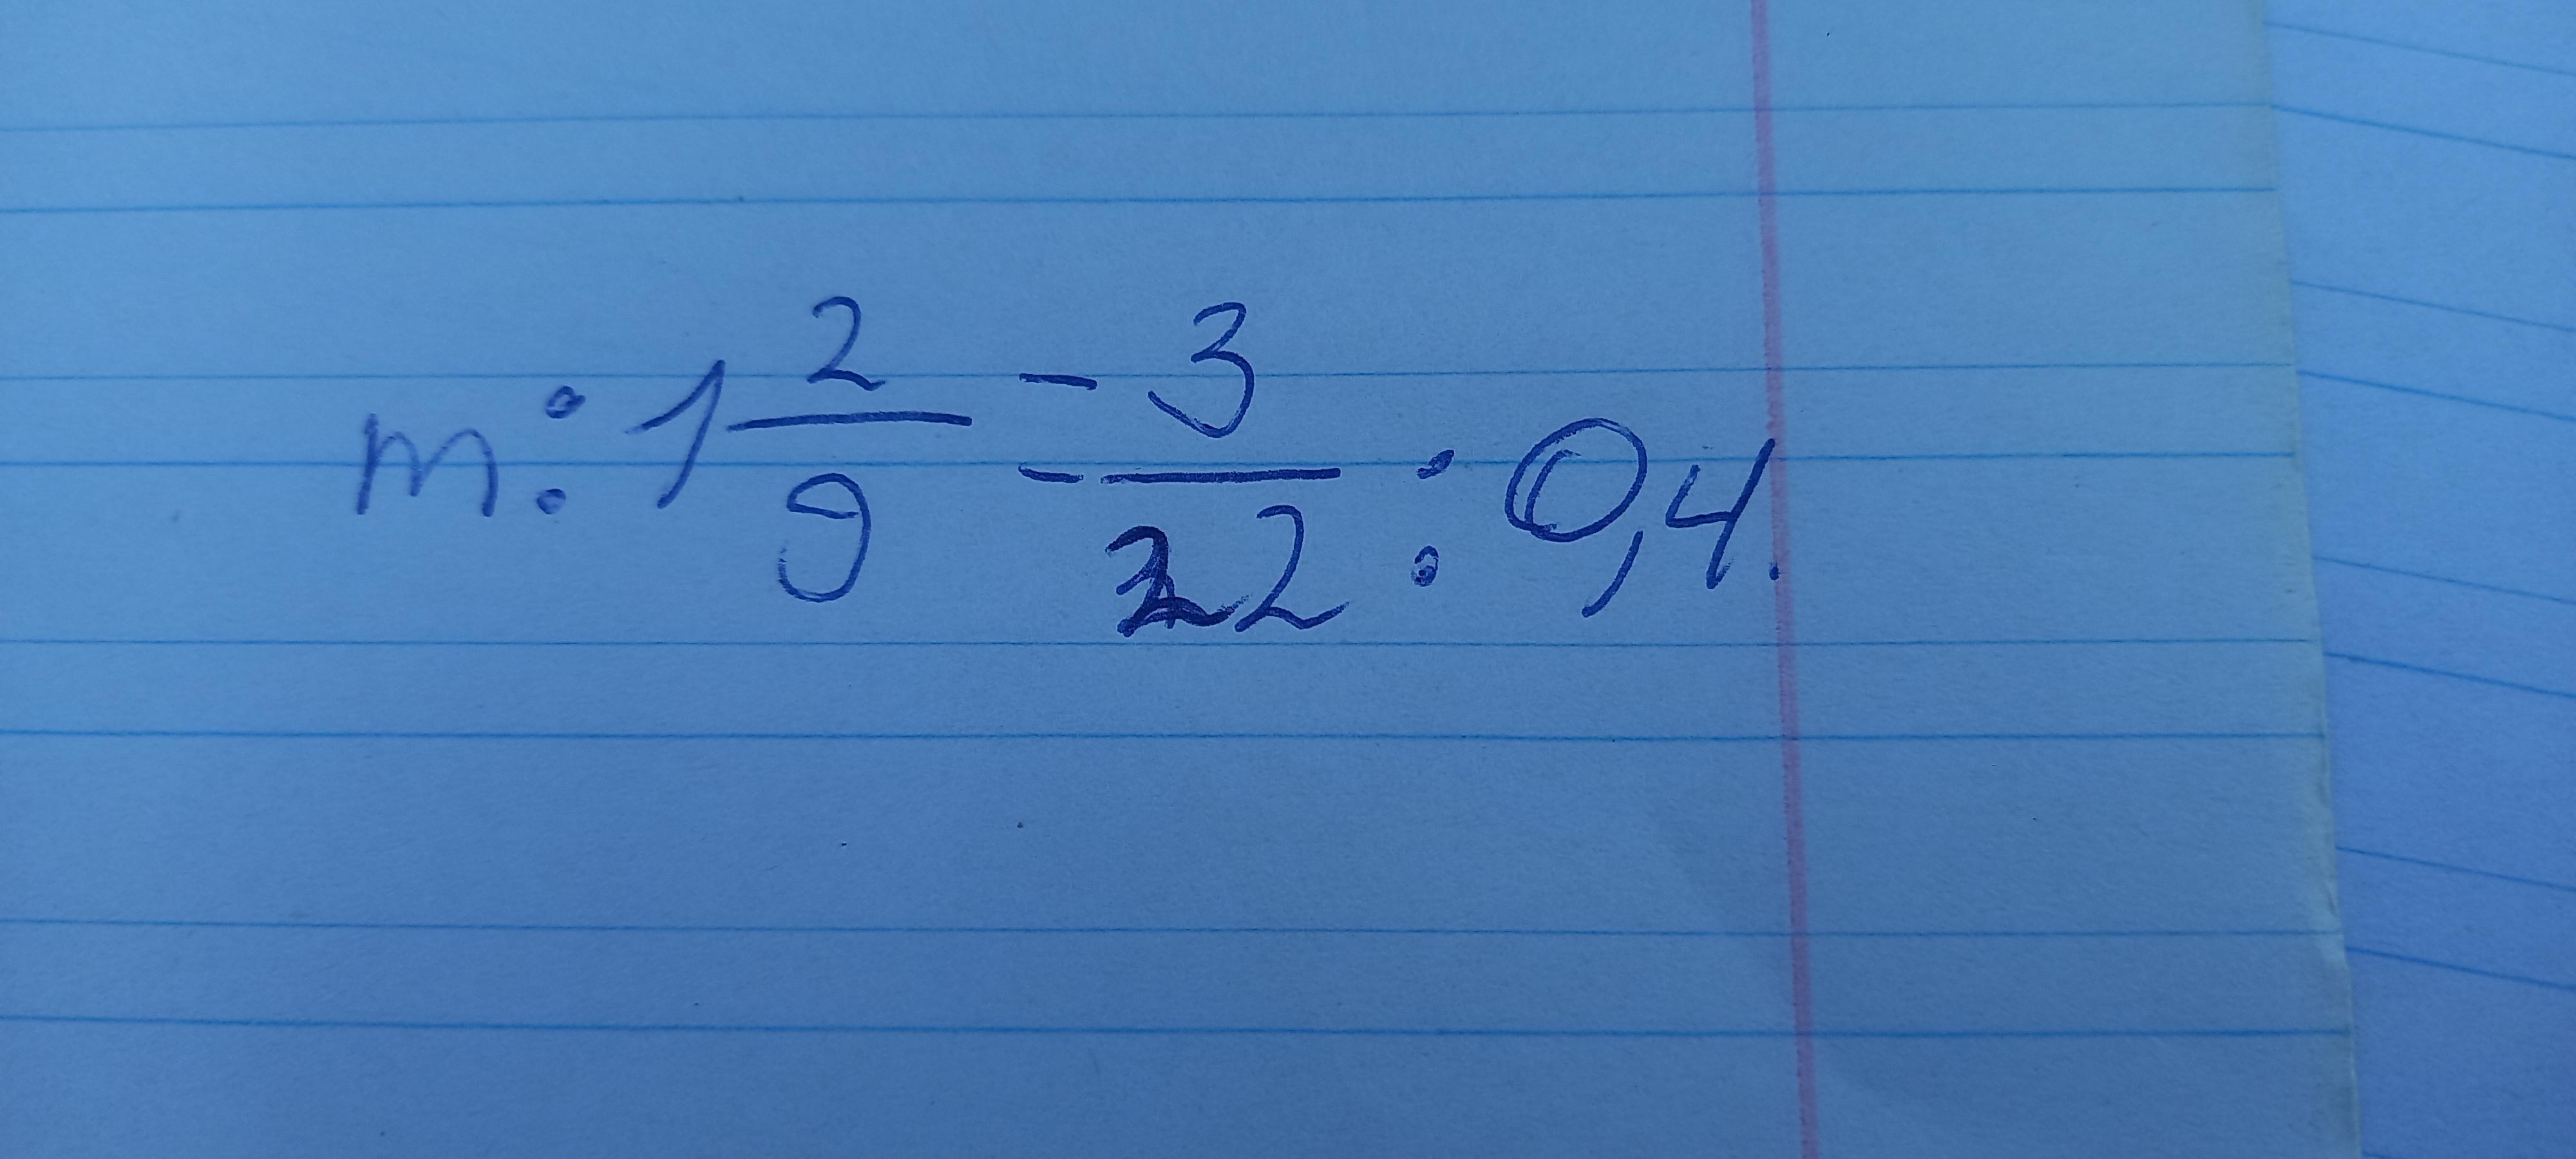 m : 1 2/9 = 3/22 : 0,4.